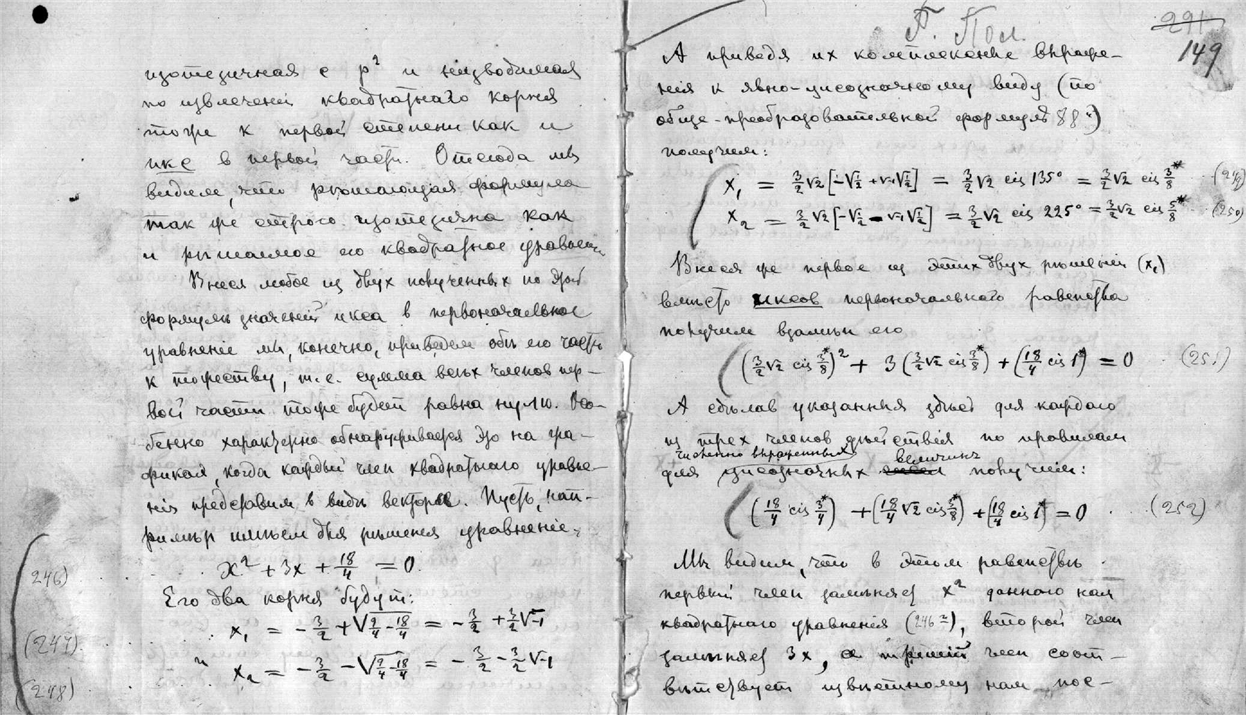 изотезичная с p² и низводимая
по извлеченіи квадратнаго корня
тоже к первой степени как и
икс в первой части. Отсюда мы
видим, что рѣшающая формула
так же строго изотезична как
и рѣшаемое ею квадратное уравнен
Внеся любое из двух полученных по этой
формулѣ значеній икса в первоначальное
уравненіе мы, конечно, приведем обѣ его части
к тожеству, т.е. сумма всѣх членов пер-
вой части тоже будет равна нулю. Осо-
бенно характерно обнаруживается это на гра-
фиках, когда каждый член квадратнаго уравне-
нія представим в видѣ векторов. Пусть, нап-
римѣр имѣем для рѣшенія уравненіе,
246) x² + 3x + 18/4 = 0.
Его два корня будут:
(247) x₁ = -3/2 + √(9/4 - 18/4) = -3/2 + 3/2 √-1
(248) и x₂ = -3/2 - √(9/4 - 18/4) = -3/2 - 3/2 √-1
Г. Пол.
291
149
А приведя их комплексные выраже-
нія к явно-цисозначному виду (по
обще-преобразовательной формулѣ 88)
получим:
x₁ = 3/2 √2 [-√1/2 + √-1 √1/2] = 3/2 √2 cis 135° = 3/2 √2 cis 3/8* (249)
x₂ = 3/2 √2 [-√1/2 - √-1 √1/2] = 3/2 √2 cis 225° = 3/2 √2 cis 5/8* (250)
Внеся же первое из этих двух рѣшеній (x₁)
вмѣсто иксов первоначальнаго равенства
получим взамѣн его
(3/2 √2 cis 3/8*)² + 3 (3/2 √2 cis 3/8*) + (18/4 cis 1*) = 0 (251)
А сдѣлав указанныя здѣсь для каждаго
из трех членов дѣйствія по правилам
численно выраженных величинъ
для цисозначных получим:
(18/4 cis 3/4*) + (18/4 √2 cis 3/8*) + (18/4 cis 1*) = 0 (252)
Мы видим, что в этом равенствѣ
первый член замѣняет x² даннаго нам
квадратнаго уравненія (246), второй член
замѣняет 3x, а третій член соот-
вѣтствует извѣстному нам пос-